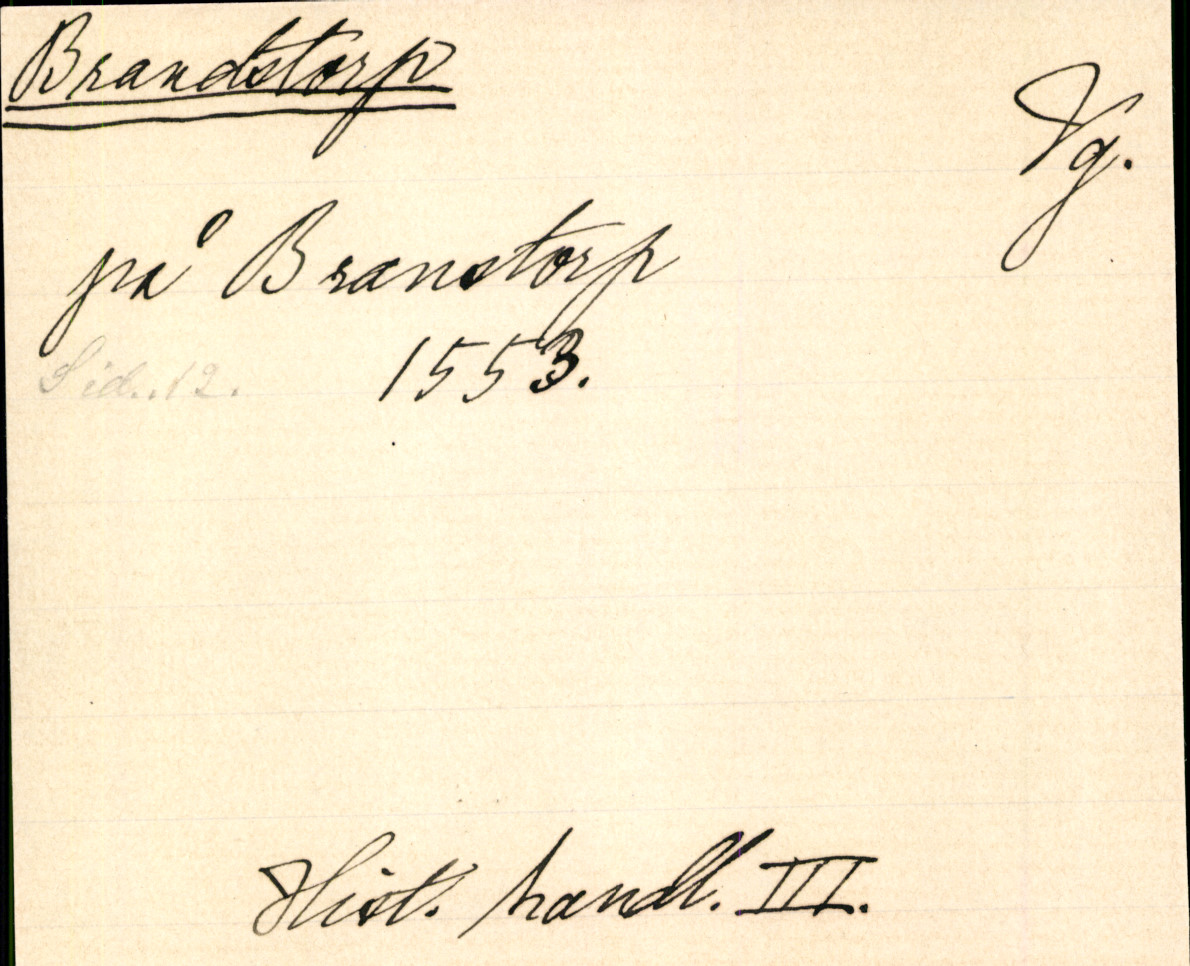 Brandstorp
Vg.
på Branstorp
Sid. 12. 1553.
Hist. handl. III.